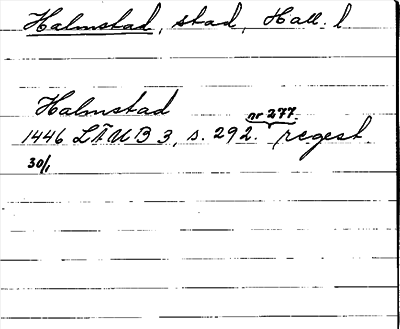 Halmstad, stad, Hall. l
Halmstad
nr 277
1446 LÄUB 3, s. 292. regest
30/1